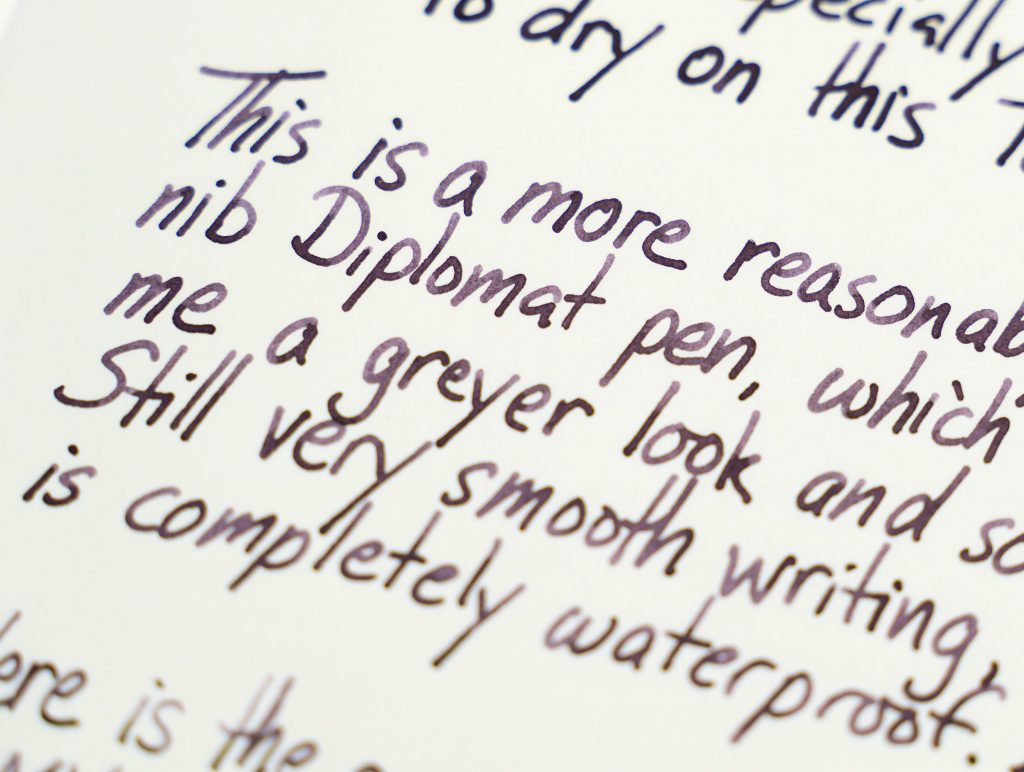 specially
to dry on this
This is a more reasonab
nib Diplomat pen, which
me a greyer look and so
Still very smooth writing,
is completely waterproof.
ere is the